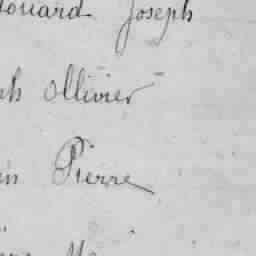 douard Joseph
ph Ollivier
in Pierre